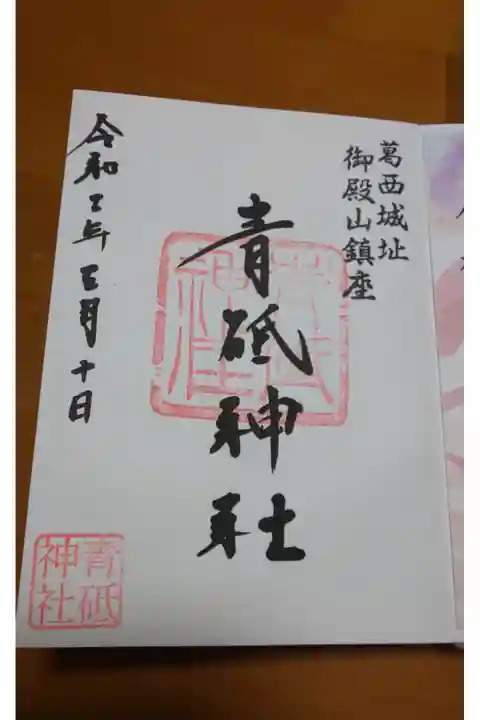 葛西城址
御殿山鎮座
青砥神社
令和五年五月十日
青砥
神社